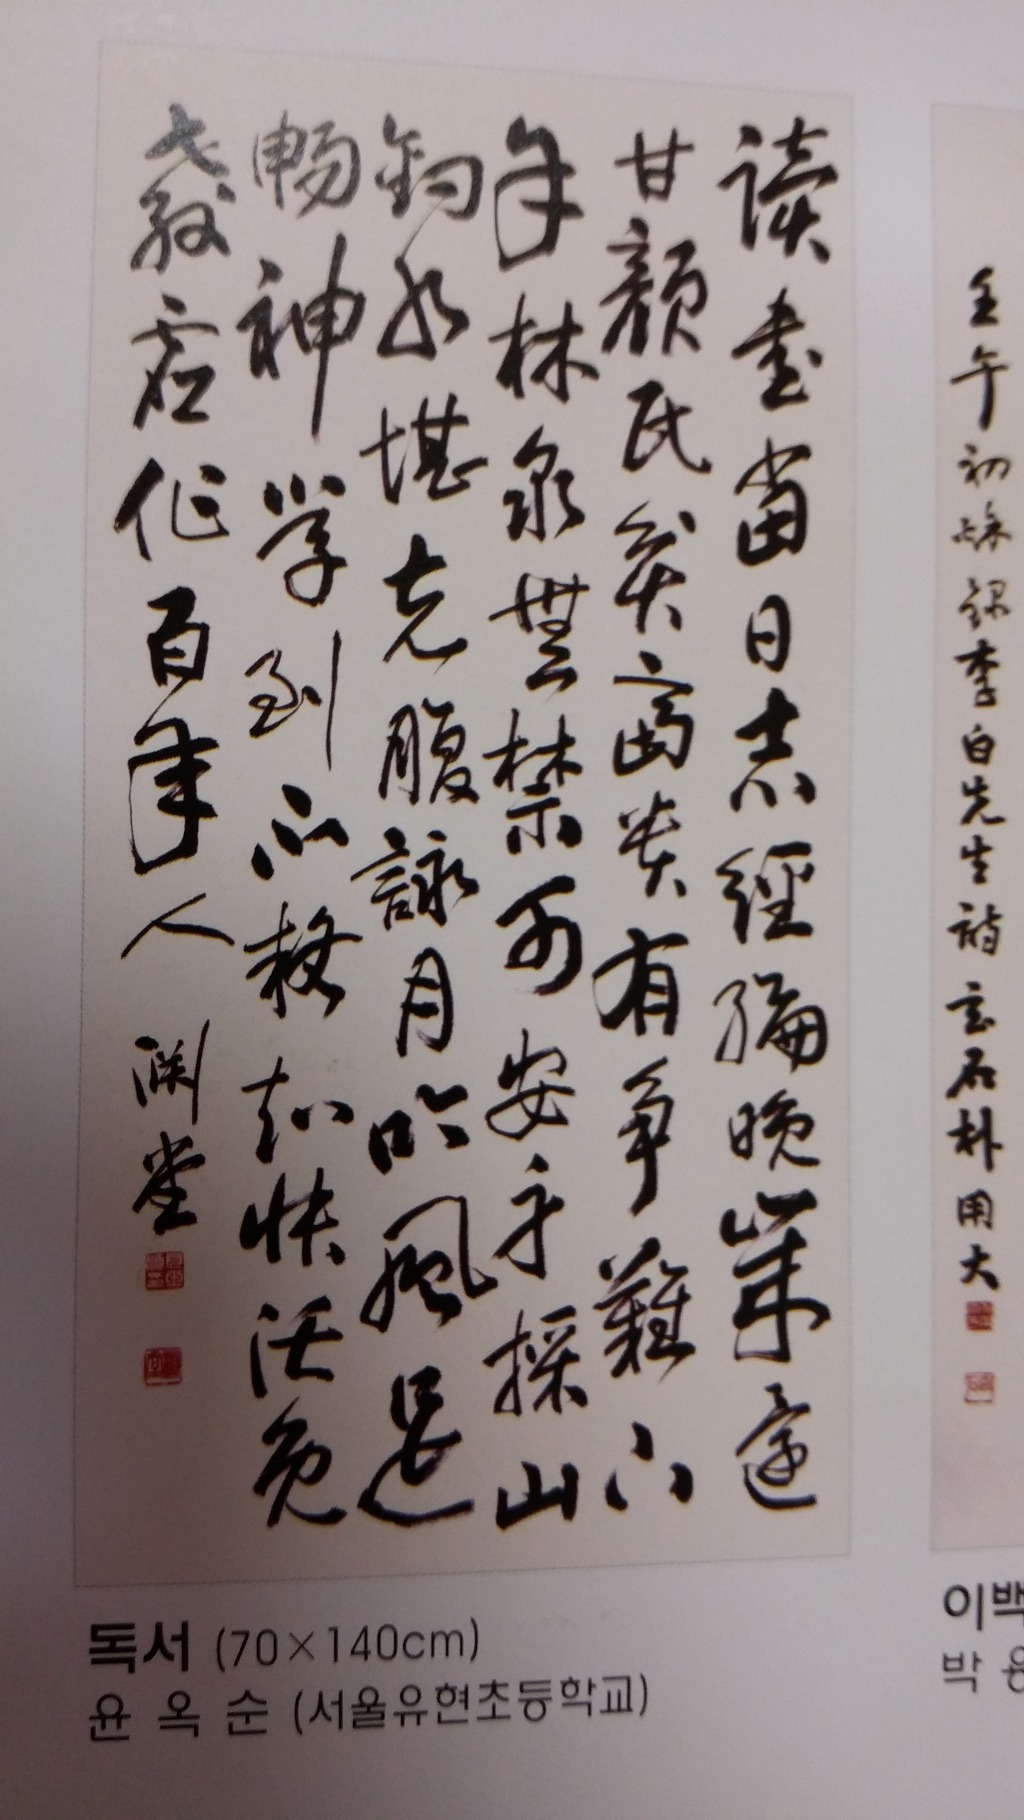 讀書當日志經綸晩歲還
甘顔氏貧富貴有爭難下
手林泉無禁可安身採山
釣水堪充腹詠月吟風足
暢神學到不疑知快活免
敎虛作百年人 淵堂
壬午初秋錄李白先生詩 玄石朴用大
독서 (70×140cm)
윤 옥 순 (서울유현초등학교)
이백
박 용